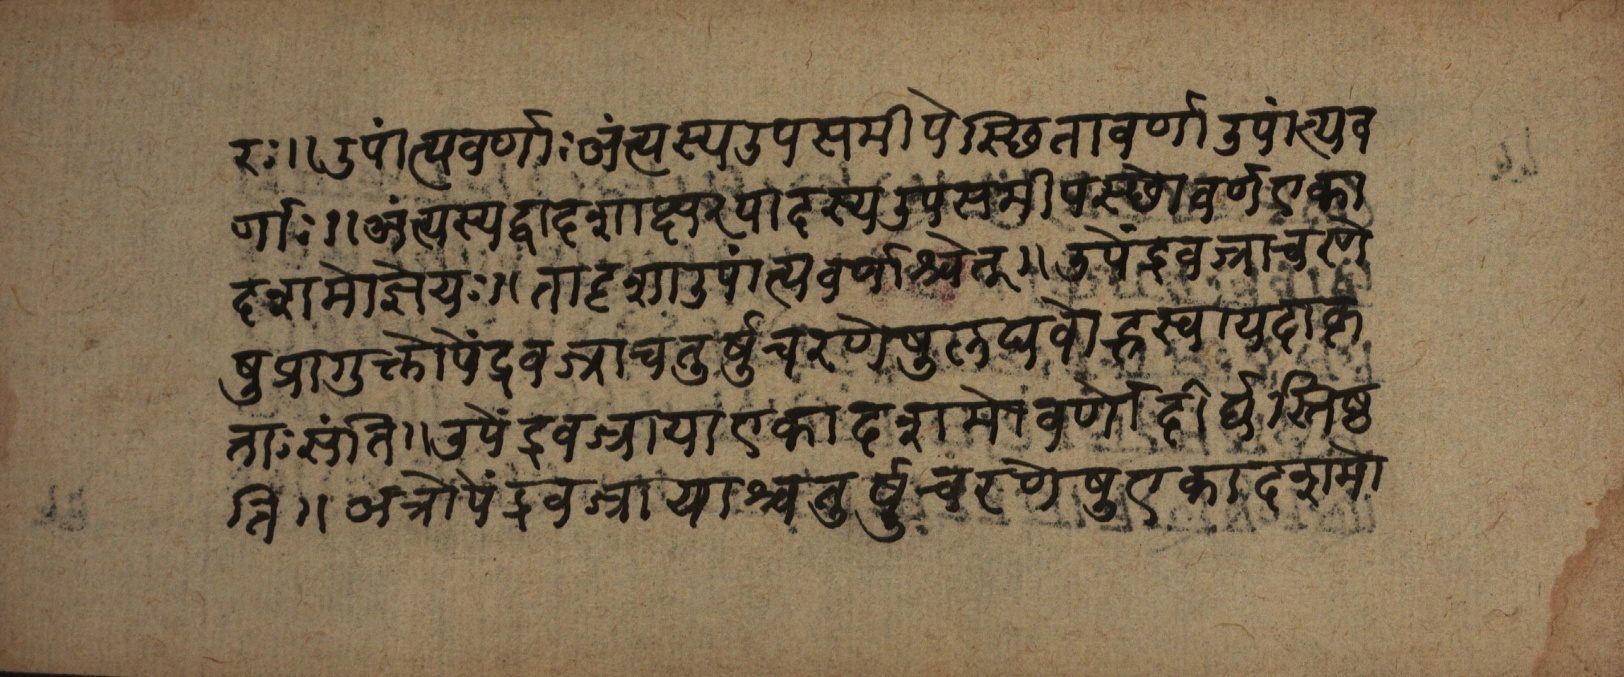 रः।। उपांत्यवर्णाः अंत्यस्य उपसमीपे स्छितावर्णा उपांत्यव
र्णाः।। अंत्यस्य द्वादशाक्षरपादस्य उपसमीपस्छो वर्ण एका
दशमो ज्ञेयः।। तादृशा उपांत्यवर्णाश्चेत्।। उपेंद्रवज्राचरणे
षु प्रागुक्तोपेंद्रवज्राचतुर्षु चरणेषु लघवो ह्रस्वा यदा कृ
ताः संति।। उपेंद्रवज्राया एकादशमो वर्णो दीर्घस्तिष्ठ
ति।। अत्रोपेंद्रवज्रायाश्चतुर्षु चरणेषु एकादशमो